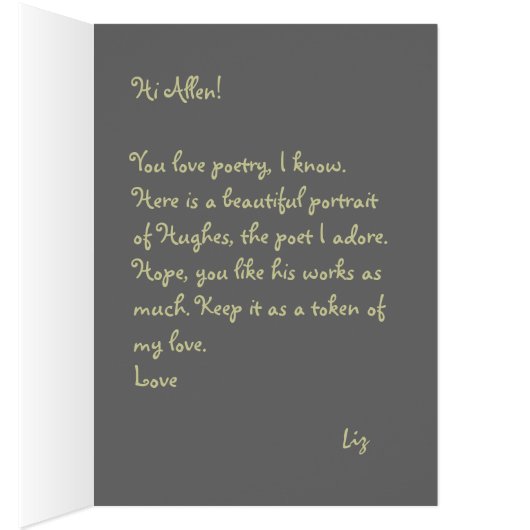 Hi Allen!
You love poetry, I know.
Here is a beautiful portrait
of Hughes, the poet I adore.
Hope, you like his works as
much. Keep it as a token of
my love.
Love
Liz